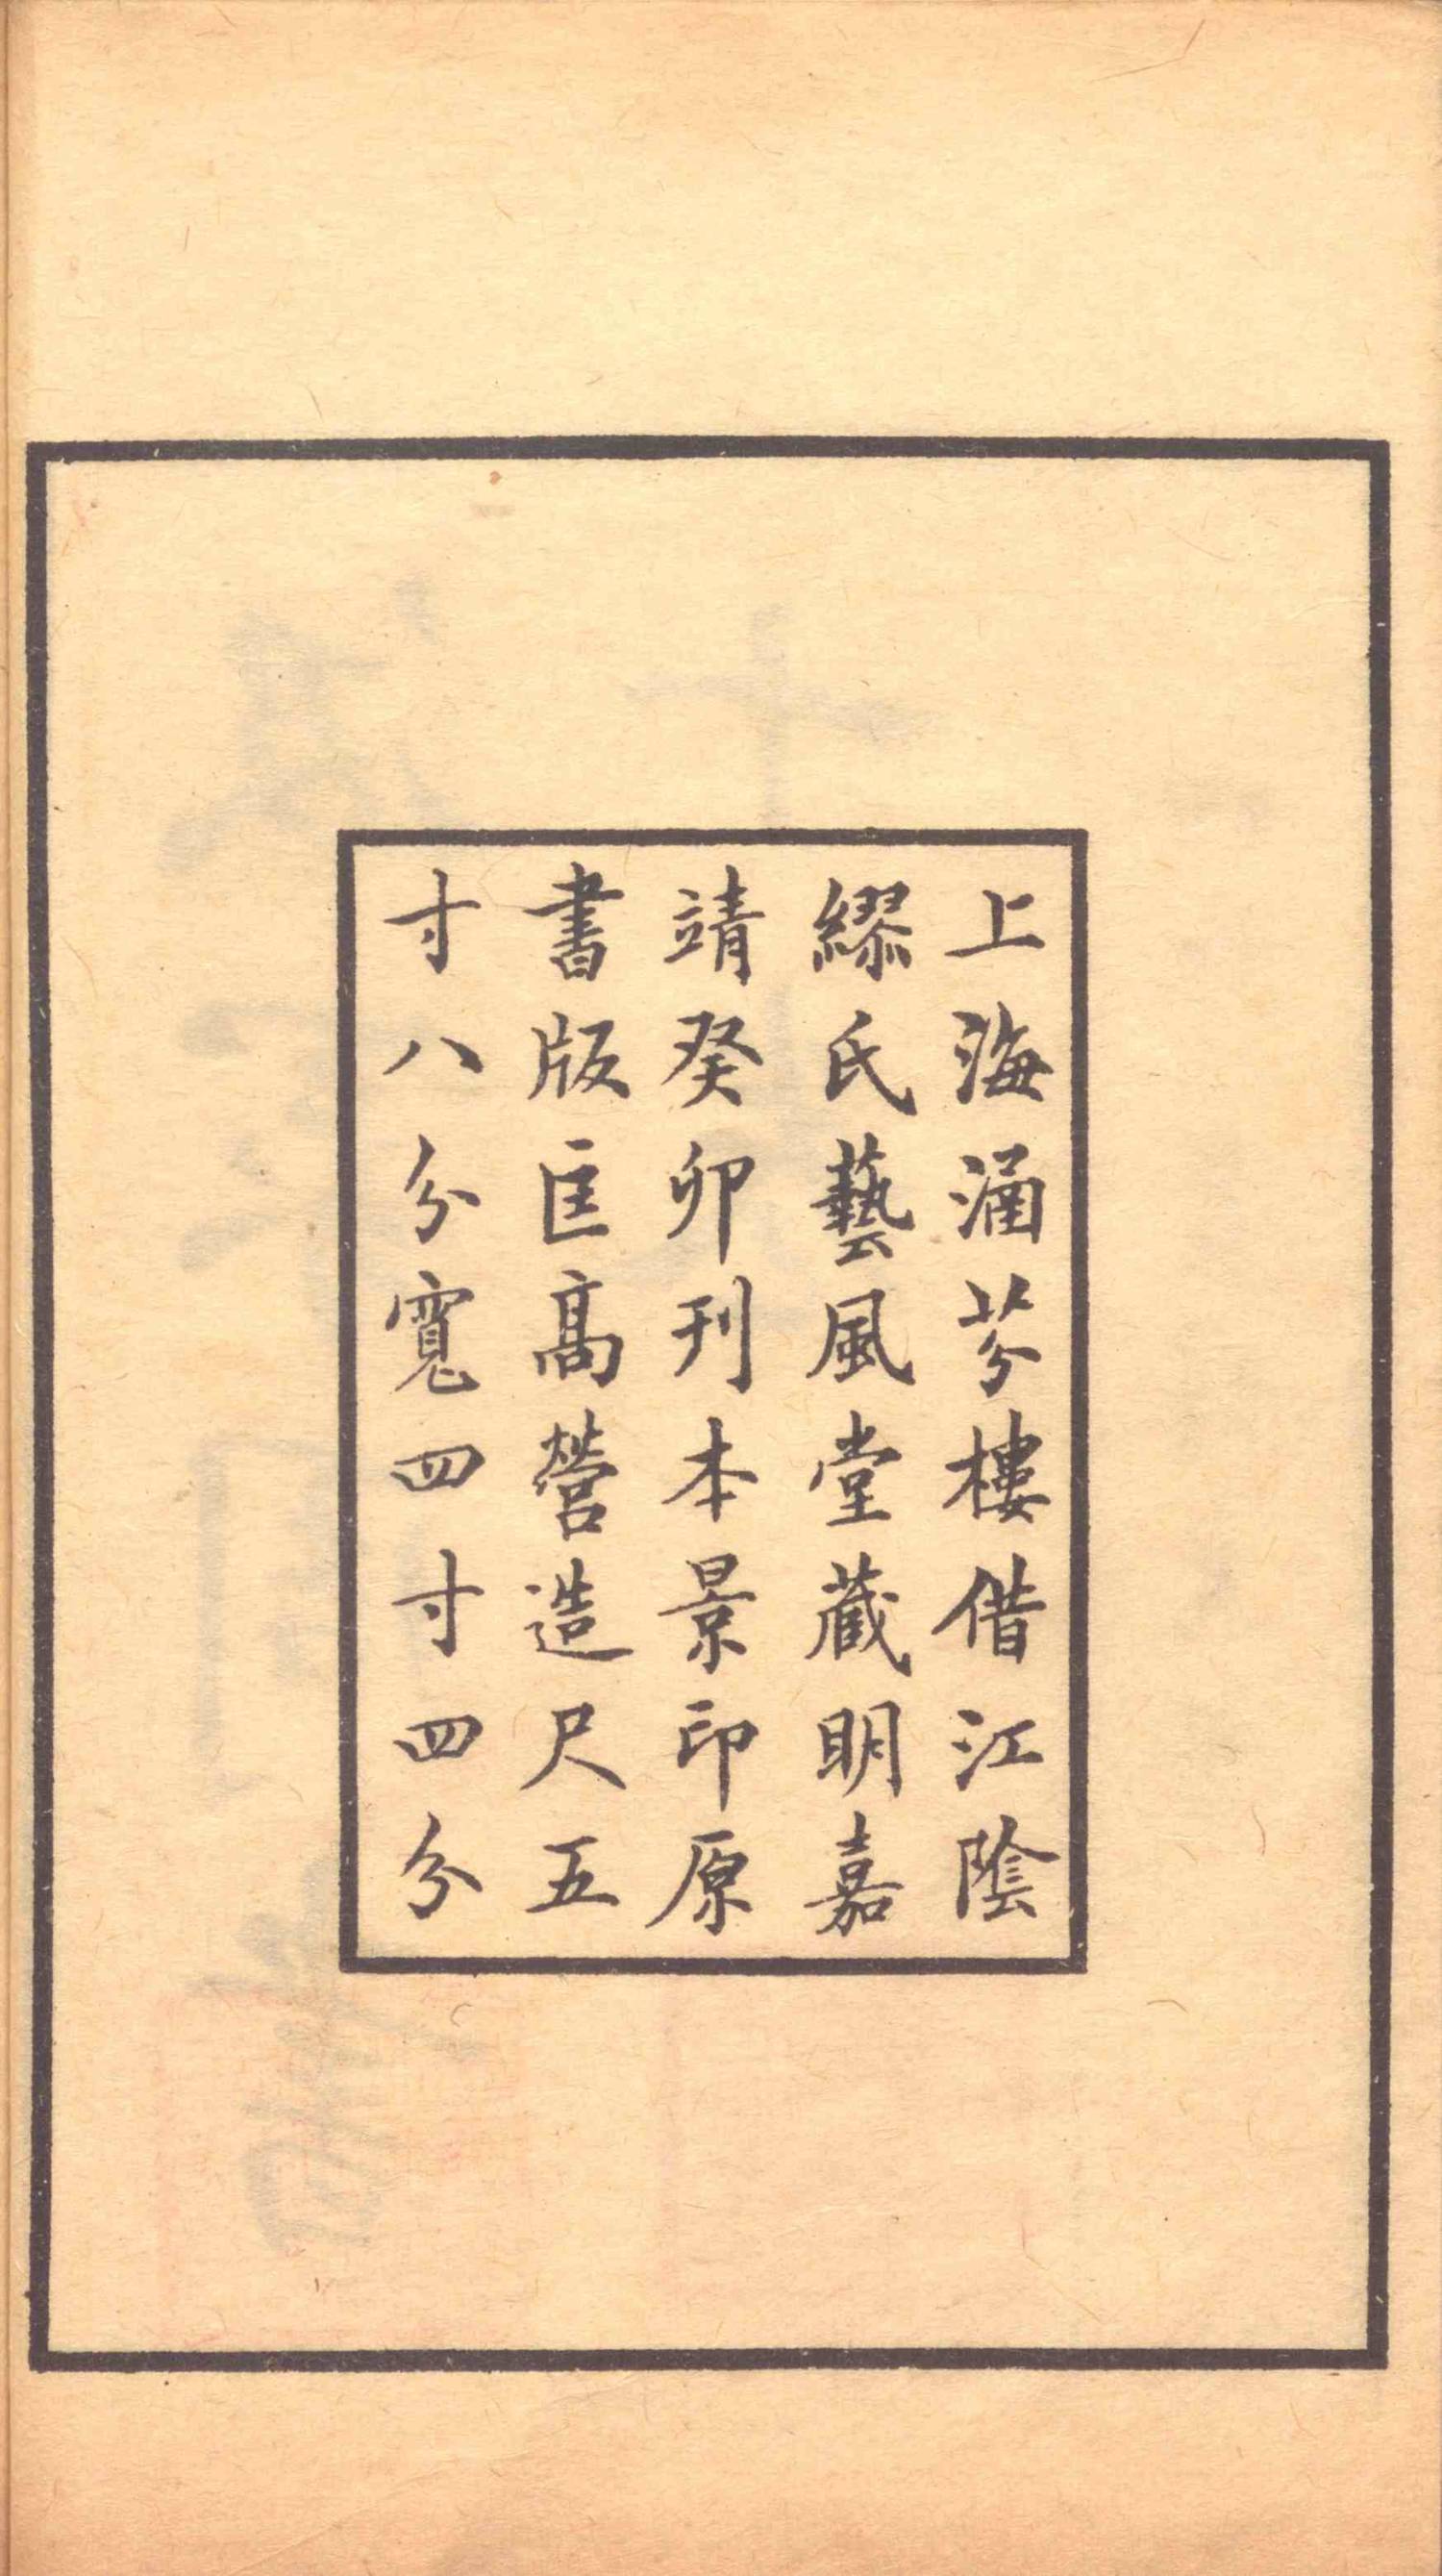 上海涵芬樓借江陰
繆氏藝風堂藏明嘉
靖癸卯刊本景印原
書版匡高營造尺五
寸八分寬四寸四分